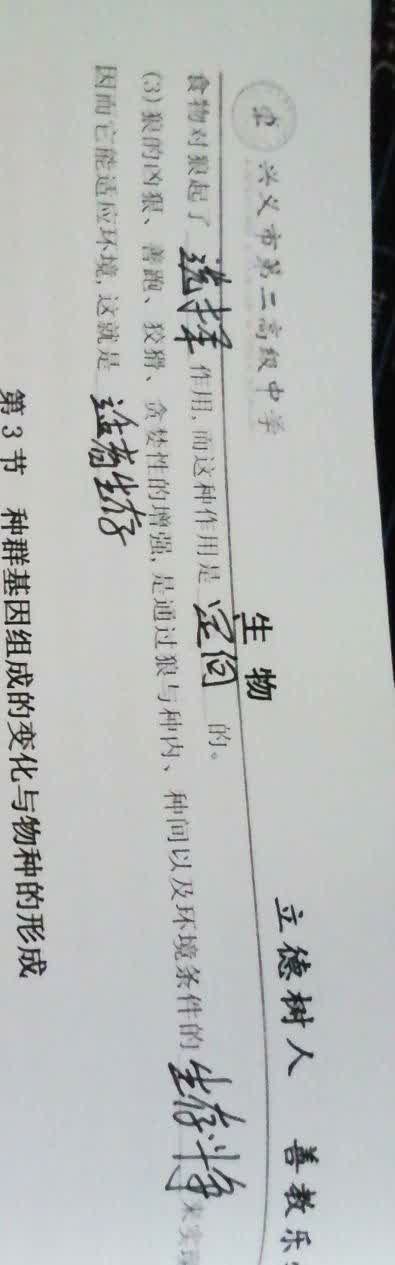 兴义市第二高级中学 生物 立德树人 善教乐
食物对狼起了 选择 作用,而这种作用是 定向 的。
(3)狼的凶狠、善跑、狡猾、贪婪性的增强,是通过狼与种内、种间以及环境条件的 生存斗争 来实现
因而它能适应环境,这就是 适者生存
第3节 种群基因组成的变化与物种的形成